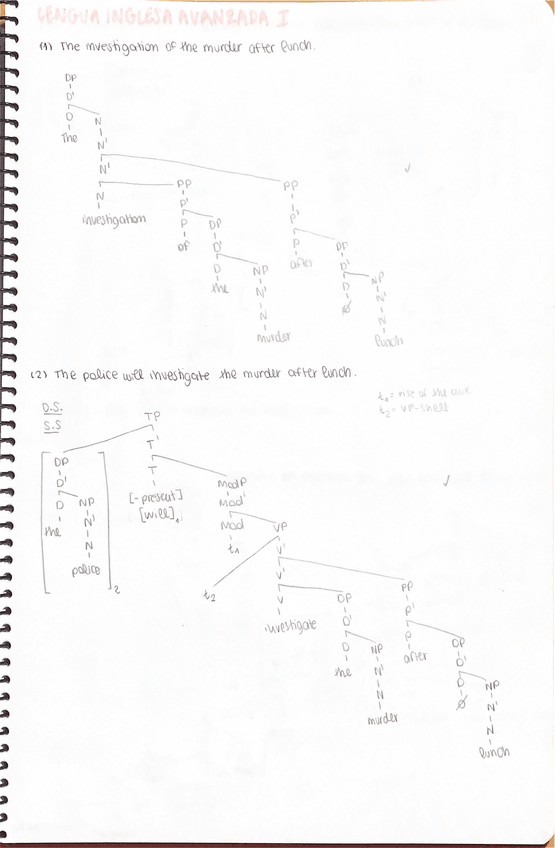 LENGUA INGLESA AVANZADA I
(1) The investigation of the murder after lunch.
DP
D'
D N
the N'
N' PP PP
N P' P'
investigation P DP P DP
of D' after D'
D NP D NP
the N' Ø N'
N N
murder lunch
(2) The police will investigate the murder after lunch.
t₁= rise of the aux
t₂= VP-shell
D.S.
S.S
TP
DP T'
D' T ModP
D NP [-present] Mod'
the N' [will]₁ Mod VP
N t₁ V'
police 2 t₂ V' PP
V DP P'
investigate D' P DP
D NP after D'
the N' D NP
N Ø N'
murder N
lunch